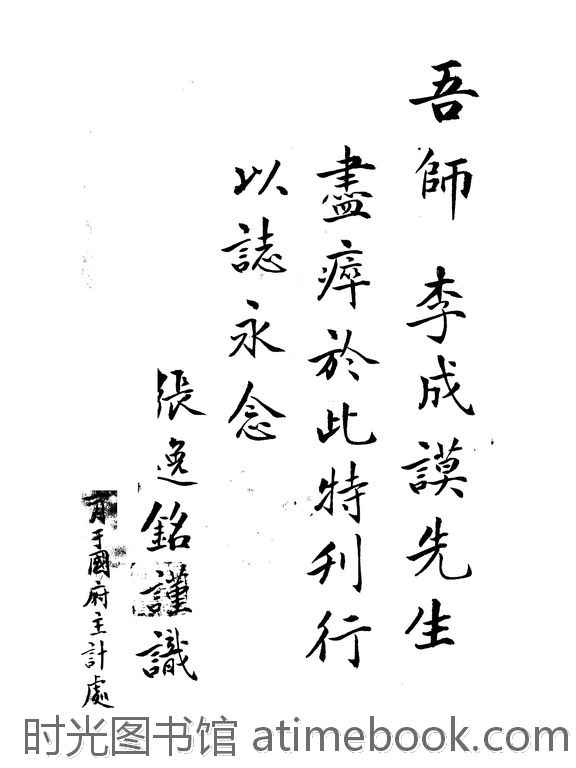 吾師 李成謨先生
盡瘁於此特刊行
以誌永念
張逸銘謹識
于國府主計處
时光图书馆 atimebook.com